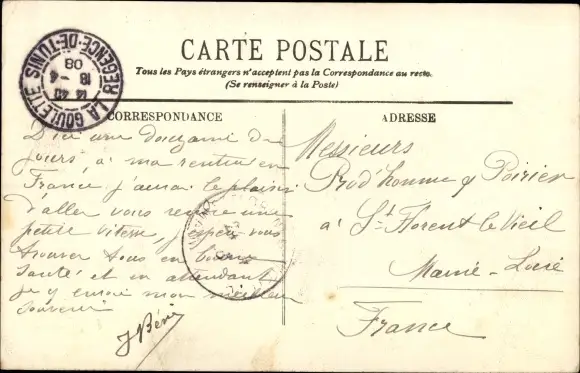 CARTE POSTALE
Tous les Pays étrangers n'acceptent pas la Correspondance au recto.
(Se renseigner à la Poste)
LA GOULETTE
REGENCE-DE-TUNIS
18 - 4
08
CORRESPONDANCE
D'ici une douzaine de
jours à ma rentrée en
France j'aurai le plaisir
d'aller vous rendre une
petite visite, j'espère vous
trouver tous en bonne
santé et en attendant
je y envoie mon meilleur
souvenir
ADRESSE
Messieurs
Prod'homme & Poirier
à St Florent le Vieil
Maine-Loire
France